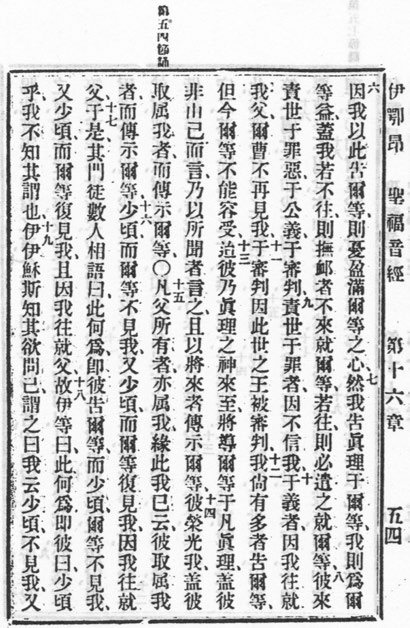 第五四節誦
伊鄂昂 聖福音經 第十六章 五四
六
因我以此告爾等、則憂盈滿爾等之心、七然我告眞理于爾等、我則爲爾
等益、蓋我若不往、則撫卹者不來就爾等、若往、則必遣之就爾等、八彼來
責世于罪惡、于公義、于審判、九責世于罪者、因不信我、十于義者、因我往就
我父、爾曹不再見我、十一于審判、因此世之王被審判、十二我尙有多者告爾等、
但今爾等不能容受、十三迨彼乃眞理之神來至、將導爾等于凡眞理、蓋彼
非由已而言、乃以所聞者言之、且以將來者傳示爾等、十四彼榮光我、蓋彼
取屬我者、而傳示爾等、〇十五凡父所有者、亦屬我、緣此我已云、彼取屬我
者、而傳示爾等、十六少頃而爾等不見我、又少頃而爾等復見我、因我往就
父、十七于是其門徒數人相語曰、此何爲、卽彼告爾等、而少頃爾等不見我、
又少頃而爾等復見我、且因我往就父、十八故伊等曰、此何爲、卽彼曰少頃
乎、我不知其謂也、十九伊伊穌斯知其欲問己、謂之曰、我云少頃不見我、又